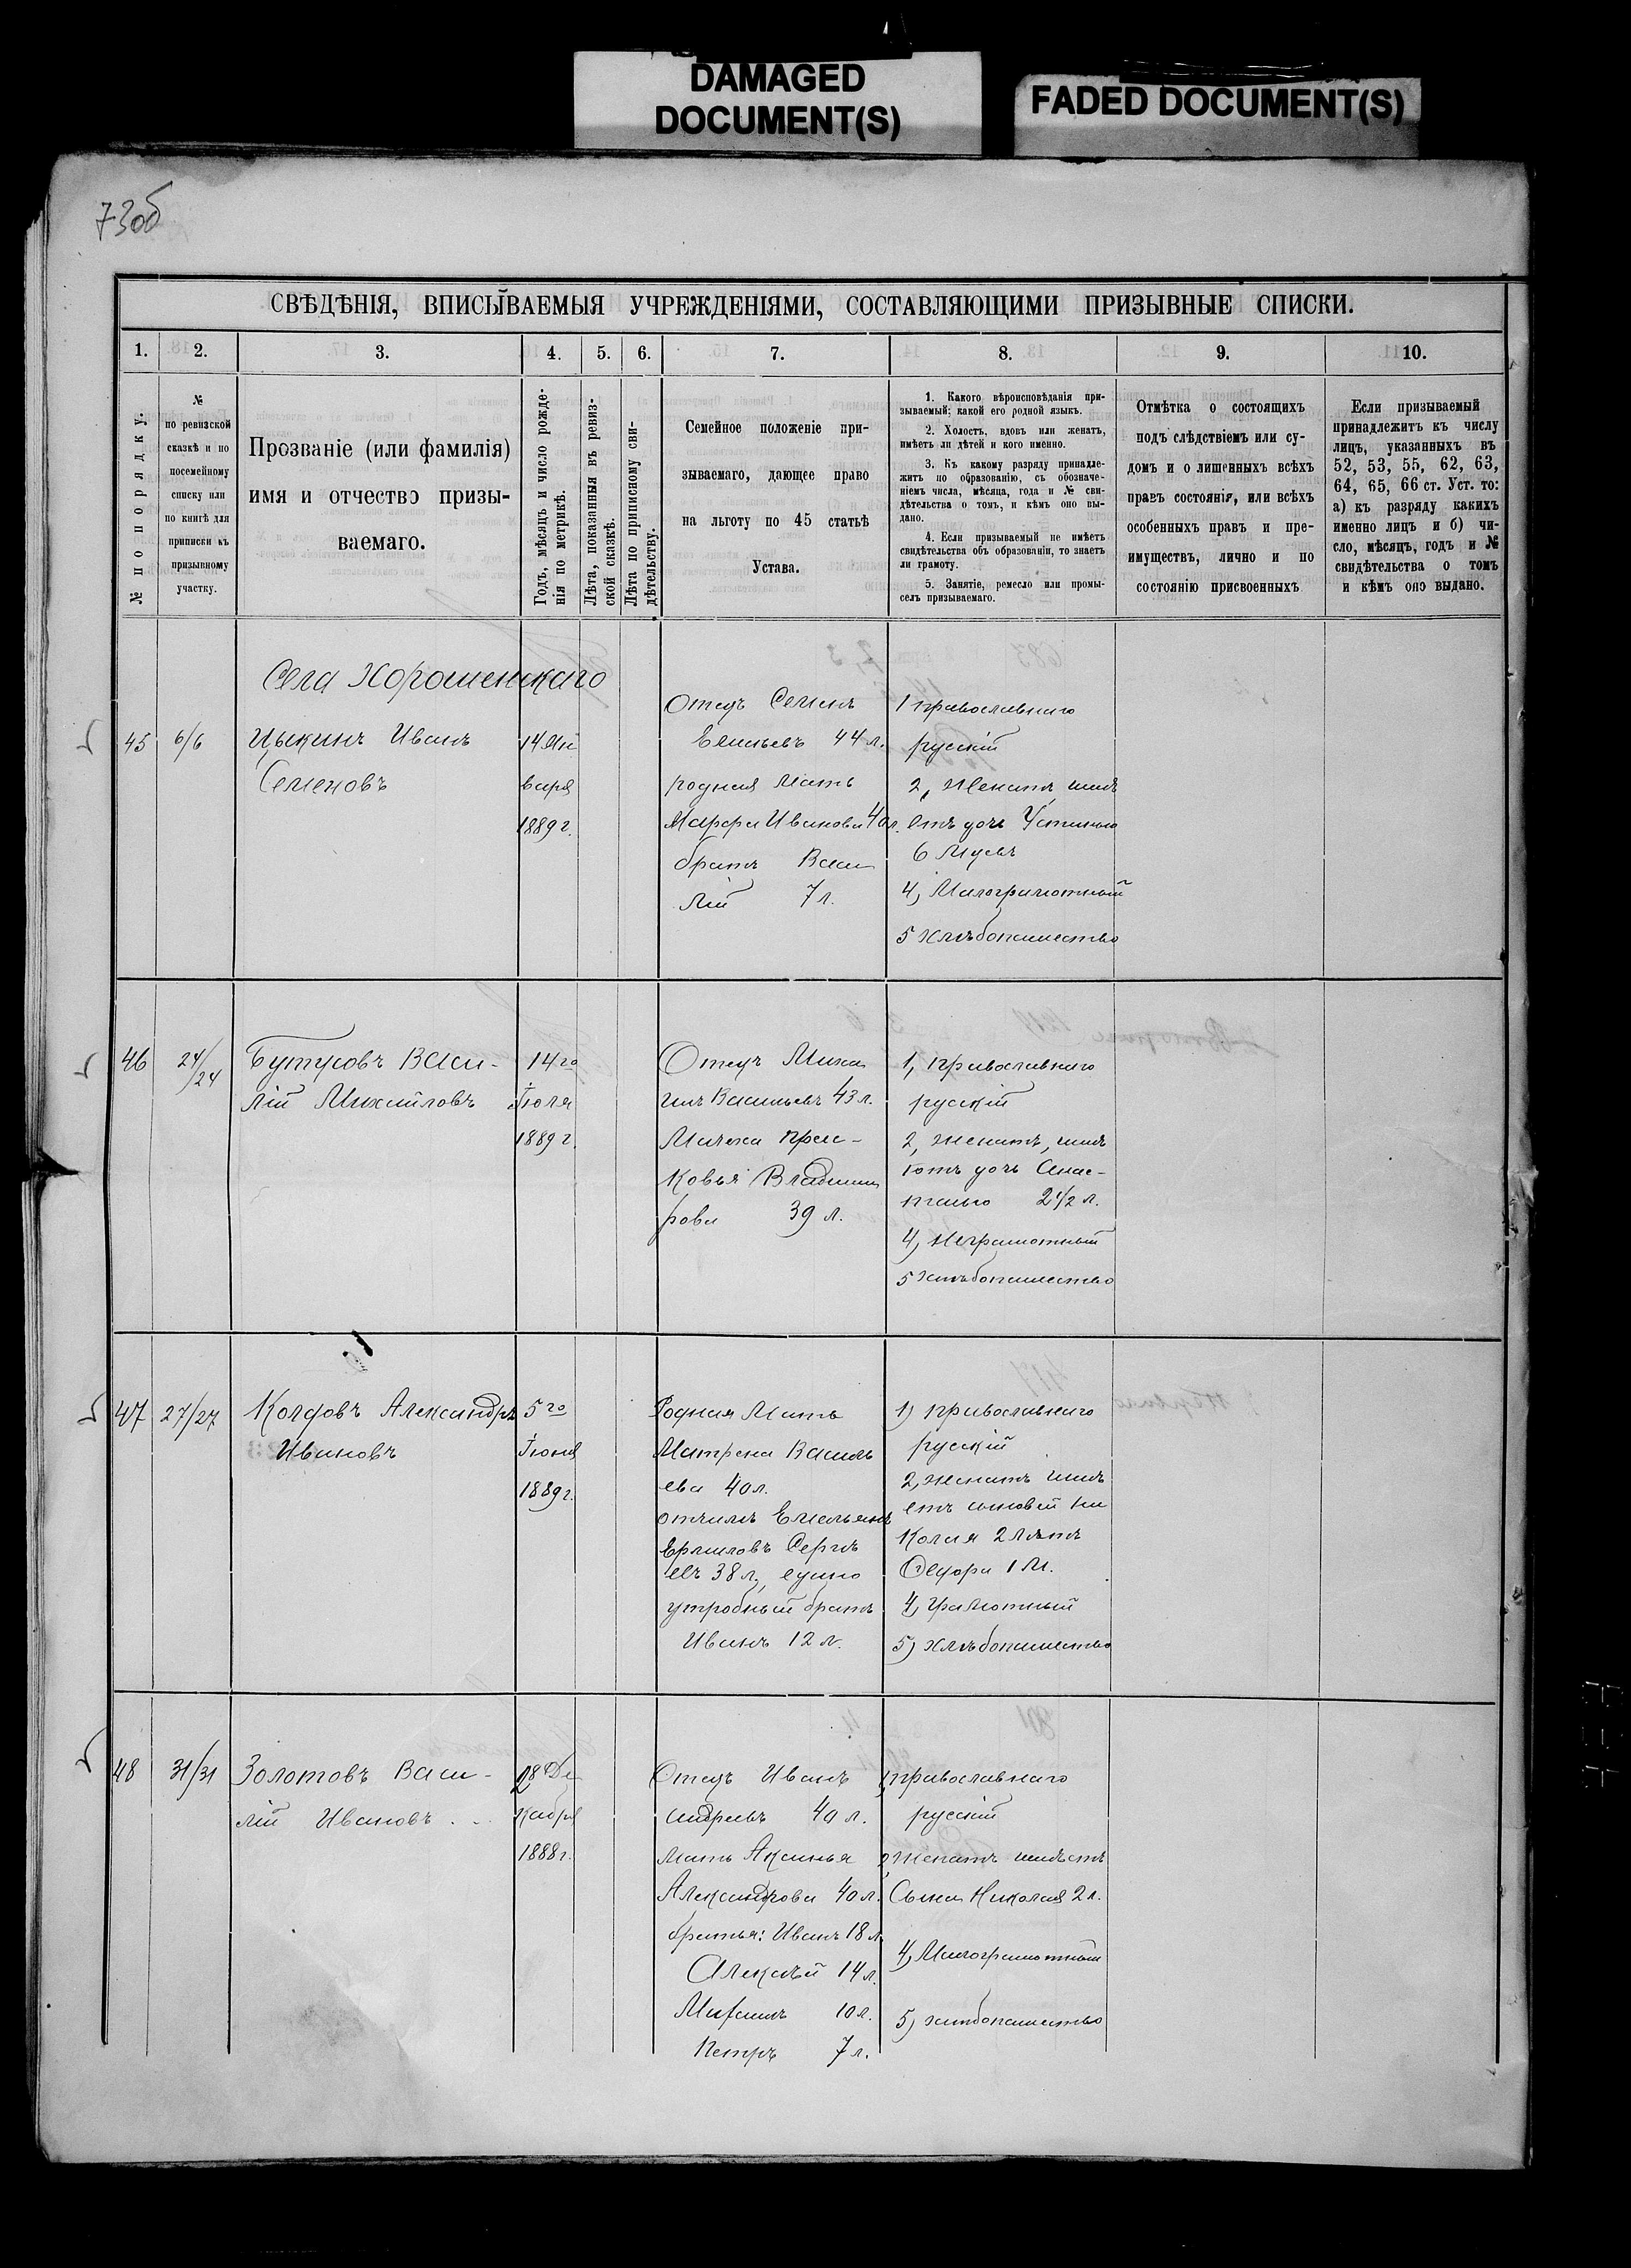 DAMAGED
DOCUMENT(S)
FADED DOCUMENT(S)
73об
СВѢДѢНІЯ, ВПИСЫВАЕМЫЯ УЧРЕЖДЕНІЯМИ, СОСТАВЛЯЮЩИМИ ПРИЗЫВНЫЕ СПИСКИ.
1. 2. 3. 4. 5. 6. 7. 8. 9. 10.
№ по порядку.
№
по ревизской
сказкѣ и по
посемейному
списку или
по книгѣ для
приписки къ
призывному
участку.
Прозваніе (или фамилія)
имя и отчество призы-
ваемаго.
Годъ, мѣсяцъ и число рожде-
нія по метрикѣ.
Лѣта, показанныя въ ревиз-
ской сказкѣ.
Лѣта по приписному сви-
дѣтельству.
Семейное положеніе при-
зываемаго, дающее право
на льготу по 45 статьѣ
Устава.
1. Какого вѣроисповѣданія при-
зываемый; какой его родной языкъ.
2. Холостъ, вдовъ или женатъ,
имѣетъ ли дѣтей и кого именно.
3. Къ какому разряду принадле-
житъ по образованію, съ обозначе-
ніемъ числа, мѣсяца, года и № сви-
дѣтельства о томъ, и кѣмъ оно вы-
дано.
4. Если призываемый не имѣетъ
свидѣтельства объ образованіи, то знаетъ
ли грамоту.
5. Занятіе, ремесло или промы-
селъ призываемаго.
Отмѣтка о состоящихъ
подъ слѣдствіемъ или су-
домъ и о лишенныхъ всѣхъ
правъ состоянія, или всѣхъ
особенныхъ правъ и пре-
имуществъ, лично и по
состоянію присвоенныхъ
Если призываемый
принадлежитъ къ числу
лицъ, указанныхъ въ
52, 53, 55, 62, 63,
64, 65, 66 ст. Уст. то:
а) къ разряду какихъ
именно лицъ и б) чи-
сло, мѣсяцъ, годъ и №
свидѣтельства о томъ
и кѣмъ оно выдано.
Села Хорошенскаго
45 6/6
Цыкинъ Иванъ
Семеновъ
14 Ян
варя
1889 г.
Отецъ Семенъ
44 л.
родная мать
Марфа Иванова 40 л.
братъ Васи
лій 7 л.
1 православнаго
русскій
2, Женатъ имѣ
етъ дочь Устинью
6 Мѣсъ
4, Малограмотный
5 хлѣбопашество
46 24/24
Бутусовъ Васи-
лій Михайловъ
14го
Іюля
1889 г.
Отецъ Миха
илъ Васильевъ 43 л.
Мачеха Прас-
ковья Владими
рова 39 л.
1, православнаго
русскій
2, женатъ, имѣ
етъ дочь Анас-
тасью 2 1/2 л.
4, Неграмотный
5 хлѣбопашество
47 27/27
Колдовъ Александръ
Ивановъ
5го
Іюня
1889 г.
Родная Мать
Матрена Василь
ева 40 л.
отчимъ Емельянъ
Ермиловъ Сергѣ
евъ 38 л, едино
утробный братъ
Иванъ 12 л.
1) православнаго
русскій
2, женатъ имѣ
етъ сыновей Ни
колая 2 лѣтъ
Федора 1 М.
4, грамотный
5) хлѣбопашество
48 31/31
Золотовъ Васи-
лій Ивановъ
28 Де
кабря
1888 г.
Отецъ Иванъ
Андреевъ 40 л.
мать Аксинья
Александрова 40 л.
братья: Иванъ 18 л
Алексѣй 14 л.
10 л.
Петръ 7 л.
1, православнаго
русскій
2, женатъ имѣетъ
Сына Николая 2 л.
4, Малограмотный
5) хлѣбопашество